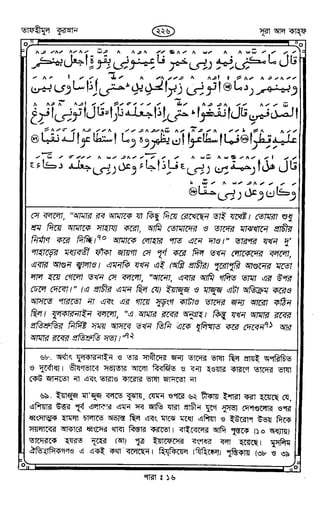 তাফহীমুল কুরআন
২২৬
সূরা আল কাহফ
قَالَ مَا مَكَّنِّي فِيهِ رَبِّي خَيْرٌ فَأَعِينُونِي بِقُوَّةٍ أَجْعَلْ بَيْنَكُمْ
وَبَيْنَهُمْ رَدْمًا ۞ آتُونِي زُبَرَ الْحَدِيدِ ۖ حَتَّىٰ إِذَا سَاوَىٰ بَيْنَ
الصَّدَفَيْنِ قَالَ انْفُخُوا ۖ حَتَّىٰ إِذَا جَعَلَهُ نَارًا ۙ قَالَ آتُونِي أُفْرِغْ
عَلَيْهِ قِطْرًا ۞ فَمَا اسْطَاعُوا أَنْ يَظْهَرُوهُ وَمَا اسْتَطَاعُوا لَهُ نَقْبًا ۞
قَالَ هَٰذَا رَحْمَةٌ مِنْ رَبِّي ۖ فَإِذَا جَاءَ وَعْدُ رَبِّي جَعَلَهُ دَكَّاءَ ۚ
وَكَانَ وَعْدُ رَبِّي حَقًّا ۞
সে বললো, “আমার রব আমাকে যা কিছু দিয়ে রেখেছেন তাই যথেষ্ট। তোমরা শুধু
শ্রম দিয়ে আমাকে সাহায্য করো, আমি তোমাদের ও তাদের মাঝখানে প্রাচীর
নির্মাণ করে দিচ্ছি।৭০ আমাকে লোহার পাত এনে দাও।” তারপর যখন দু’
পাহাড়ের মধ্যবর্তী ফাঁকা জায়গা সে পূর্ণ করে দিল তখন লোকদের বললো,
এবার আগুন জ্বালাও। এমনকি যখন এই (অগ্নি প্রাচীর) পুরোপুরি আগুনের মতো
লাল হয়ে গেলো তখন সে বললো, “আনো, এবার আমি গলিত তামা এর উপর
ঢেলে দেবো।” (এ প্রাচীর এমন ছিল যে) ইয়াজুজ ও মাজুজ এটা অতিক্রম করেও
আসতে পারতো না এবং এর গায়ে সুড়ংগ কাটাও তাদের জন্য আরো কঠিন
ছিল। যুলকারনাইন বললো, “এ আমার রবের অনুগ্রহ। কিন্তু যখন আমার রবের
প্রতিশ্রুতির নির্দিষ্ট সময় আসবে তখন তিনি একে ধূলিস্মাত করে দেবেন৭১ আর
আমার রবের প্রতিশ্রুতি সত্য।”৭২
৬৮. অর্থাৎ যুলকারনাইন ও তার সাথীদের জন্য তাদের ভাষা ছিল প্রায়ই অপরিচিত
ও দুর্বোধ্য। ভীষণভাবে সভ্যতার আলো বিবর্জিত ও বন্য হওয়ার কারণে তাদের ভাষা
কেউ জানতো না এবং তারাও কারোর ভাষা জানতো না
৬৯. ইয়াজুজ মা’জুজ বলতে বুঝায়, যেমন ওপরে ৬২ টীকায় ইশারা করা হয়েছে যে,
এশিয়ার উত্তর পূর্ব এলাকার এমন সব জাতি যারা প্রাচীন যুগে সুসভ্য দেশগুলোর ওপর
ধ্বংসাত্মক হামলা চালাতে অভ্যস্ত ছিল এবং মাঝে মধ্যে এশিয়া ও ইউরোপ উভয় দিকে
সয়লাবের আকারে ধ্বংসের থাবা বিস্তার করতো। বাইবেলের আদি পুস্তকে (১০ অধ্যায়)
তাদেরকে হযরত নূহের (আ) পুত্র ইয়াফেসের বংশধর বলা হয়েছে। মুসলিম
ঐতিহাসিকগণও এ একই কথা বলেছেন। হিযকিয়েল (যিহিষ্কেল) পুস্তিকায় (৩৮ ও ৩৯
পারা : ১৬